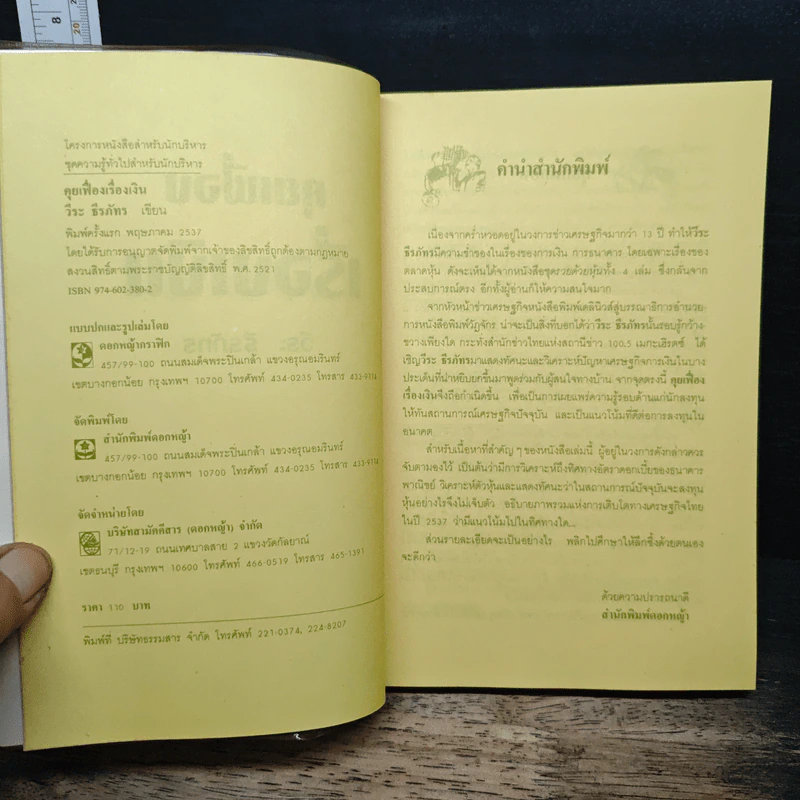 8
20
โครงการหนังสือสำหรับนักบริหาร
ชุดความรู้ทั่วไปสำหรับนักบริหาร
คุยเฟื่องเรื่องเงิน
วีระ ธีรภัทร เขียน
พิมพ์ครั้งแรก พฤษภาคม 2537
โดยได้รับการอนุญาตจัดพิมพ์จากเจ้าของลิขสิทธิ์ถูกต้องตามกฎหมาย
สงวนสิทธิ์ตามพระราชบัญญัติลิขสิทธิ์ พ.ศ. 2521
ISBN 974-602-380-2
แบบปกและรูปเล่มโดย
ดอกหญ้ากราฟิก
457/99-100 ถนนสมเด็จพระปิ่นเกล้า แขวงอรุณอมรินทร์
เขตบางกอกน้อย กรุงเทพฯ 10700 โทรศัพท์ 434-0235 โทรสาร 433-9114
จัดพิมพ์โดย
สำนักพิมพ์ดอกหญ้า
457/99-100 ถนนสมเด็จพระปิ่นเกล้า แขวงอรุณอมรินทร์
เขตบางกอกน้อย กรุงเทพฯ 10700 โทรศัพท์ 434-0235 โทรสาร 433-9114
จัดจำหน่ายโดย
บริษัทสามัคคีสาร (ดอกหญ้า) จำกัด
71/12-19 ถนนเทศบาลสาย 2 แขวงวัดกัลยาณ์
เขตธนบุรี กรุงเทพฯ 10600 โทรศัพท์ 466-0519 โทรสาร 465-1391
ราคา 110 บาท
พิมพ์ที่ บริษัทธรรมสาร จำกัด โทรศัพท์ 221-0374, 224-8207
คำนำสำนักพิมพ์
เนื่องจากคร่ำหวอดอยู่ในวงการข่าวเศรษฐกิจมากว่า 13 ปี ทำให้วีระ
ธีรภัทรมีความช่ำชองในเรื่องของการเงิน การธนาคาร โดยเฉพาะเรื่องของ
ตลาดหุ้น ดังจะเห็นได้จากหนังสือชุดรวยด้วยหุ้นทั้ง 4 เล่ม ซึ่งกลั่นจาก
ประสบการณ์ตรง อีกทั้งผู้อ่านก็ให้ความสนใจมาก
จากหัวหน้าข่าวเศรษฐกิจหนังสือพิมพ์เดลินิวส์สู่บรรณาธิการอำนวย-
การหนังสือพิมพ์วัฏจักร น่าจะเป็นสิ่งที่บอกได้ว่าวีระ ธีรภัทรนั้นรอบรู้กว้าง-
ขวางเพียงใด กระทั่งสำนักข่าวไทยแห่งสถานีข่าว 100.5 เมกะเฮิรตซ์ ได้
เชิญวีระ ธีรภัทรมาแสดงทัศนะและวิเคราะห์ปัญหาเศรษฐกิจการเงินในบาง
ประเด็นที่น่าหยิบยกขึ้นมาพูดร่วมกับผู้สนใจทางบ้าน จากจุดตรงนี้ คุยเฟื่อง
เรื่องเงินจึงถือกำเนิดขึ้น เพื่อเป็นการเผยแพร่ความรู้รอบด้านแก่นักลงทุน
ให้ทันสถานการณ์เศรษฐกิจปัจจุบัน และเป็นแนวโน้มที่ดีต่อการลงทุนใน
อนาคต
สำหรับเนื้อหาที่สำคัญๆ ของหนังสือเล่มนี้ ผู้อยู่ในวงการดังกล่าวควร
จับตามองไว้ เป็นต้นว่ามีการวิเคราะห์ถึงทิศทางอัตราดอกเบี้ยของธนาคาร
พาณิชย์ วิเคราะห์ตัวหุ้นและแสดงทัศนะว่าในสถานการณ์ปัจจุบันจะลงทุน
หุ้นอย่างไรจึงไม่เจ็บตัว อธิบายภาพรวมแห่งการเติบโตทางเศรษฐกิจไทย
ในปี 2537 ว่ามีแนวโน้มไปในทิศทางใด...
ส่วนรายละเอียดจะเป็นอย่างไร พลิกไปศึกษาให้ลึกซึ้งด้วยตนเอง
จะดีกว่า
ด้วยความปรารถนาดี
สำนักพิมพ์ดอกหญ้า